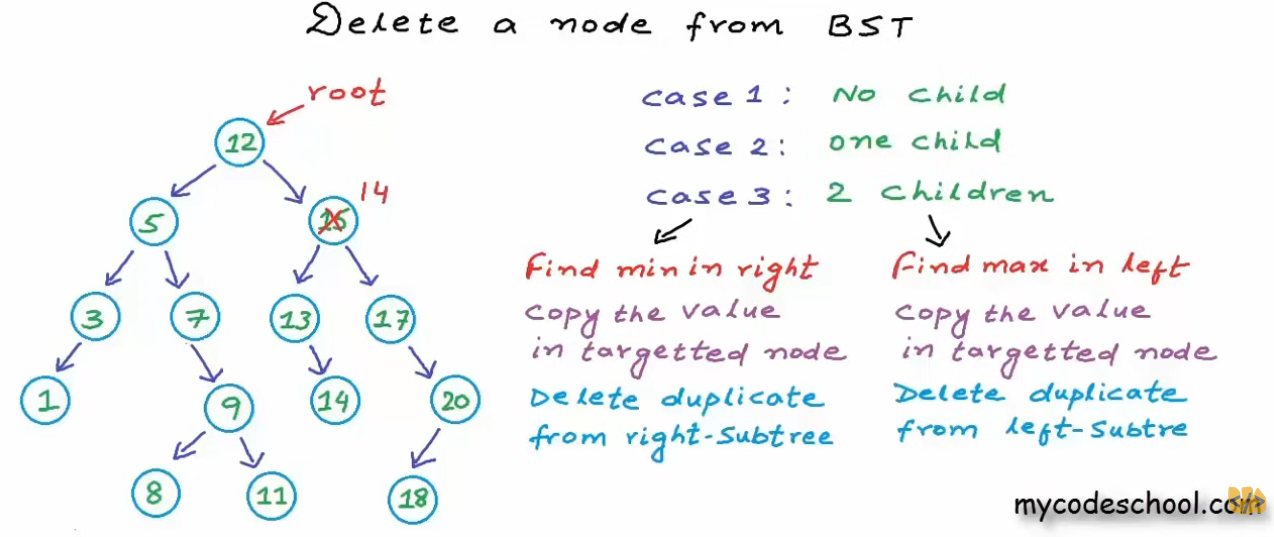 Delete a node from BST
root
12
14
5
15
3
7
13
17
1
9
14
20
8
11
18
case 1: No child
case 2: one child
case 3: 2 children
Find min in right
copy the value
in targetted node
Delete duplicate
from right-subtree
Find max in left
copy the value
in targetted node
Delete duplicate
from left-subtre
mycodeschool.com